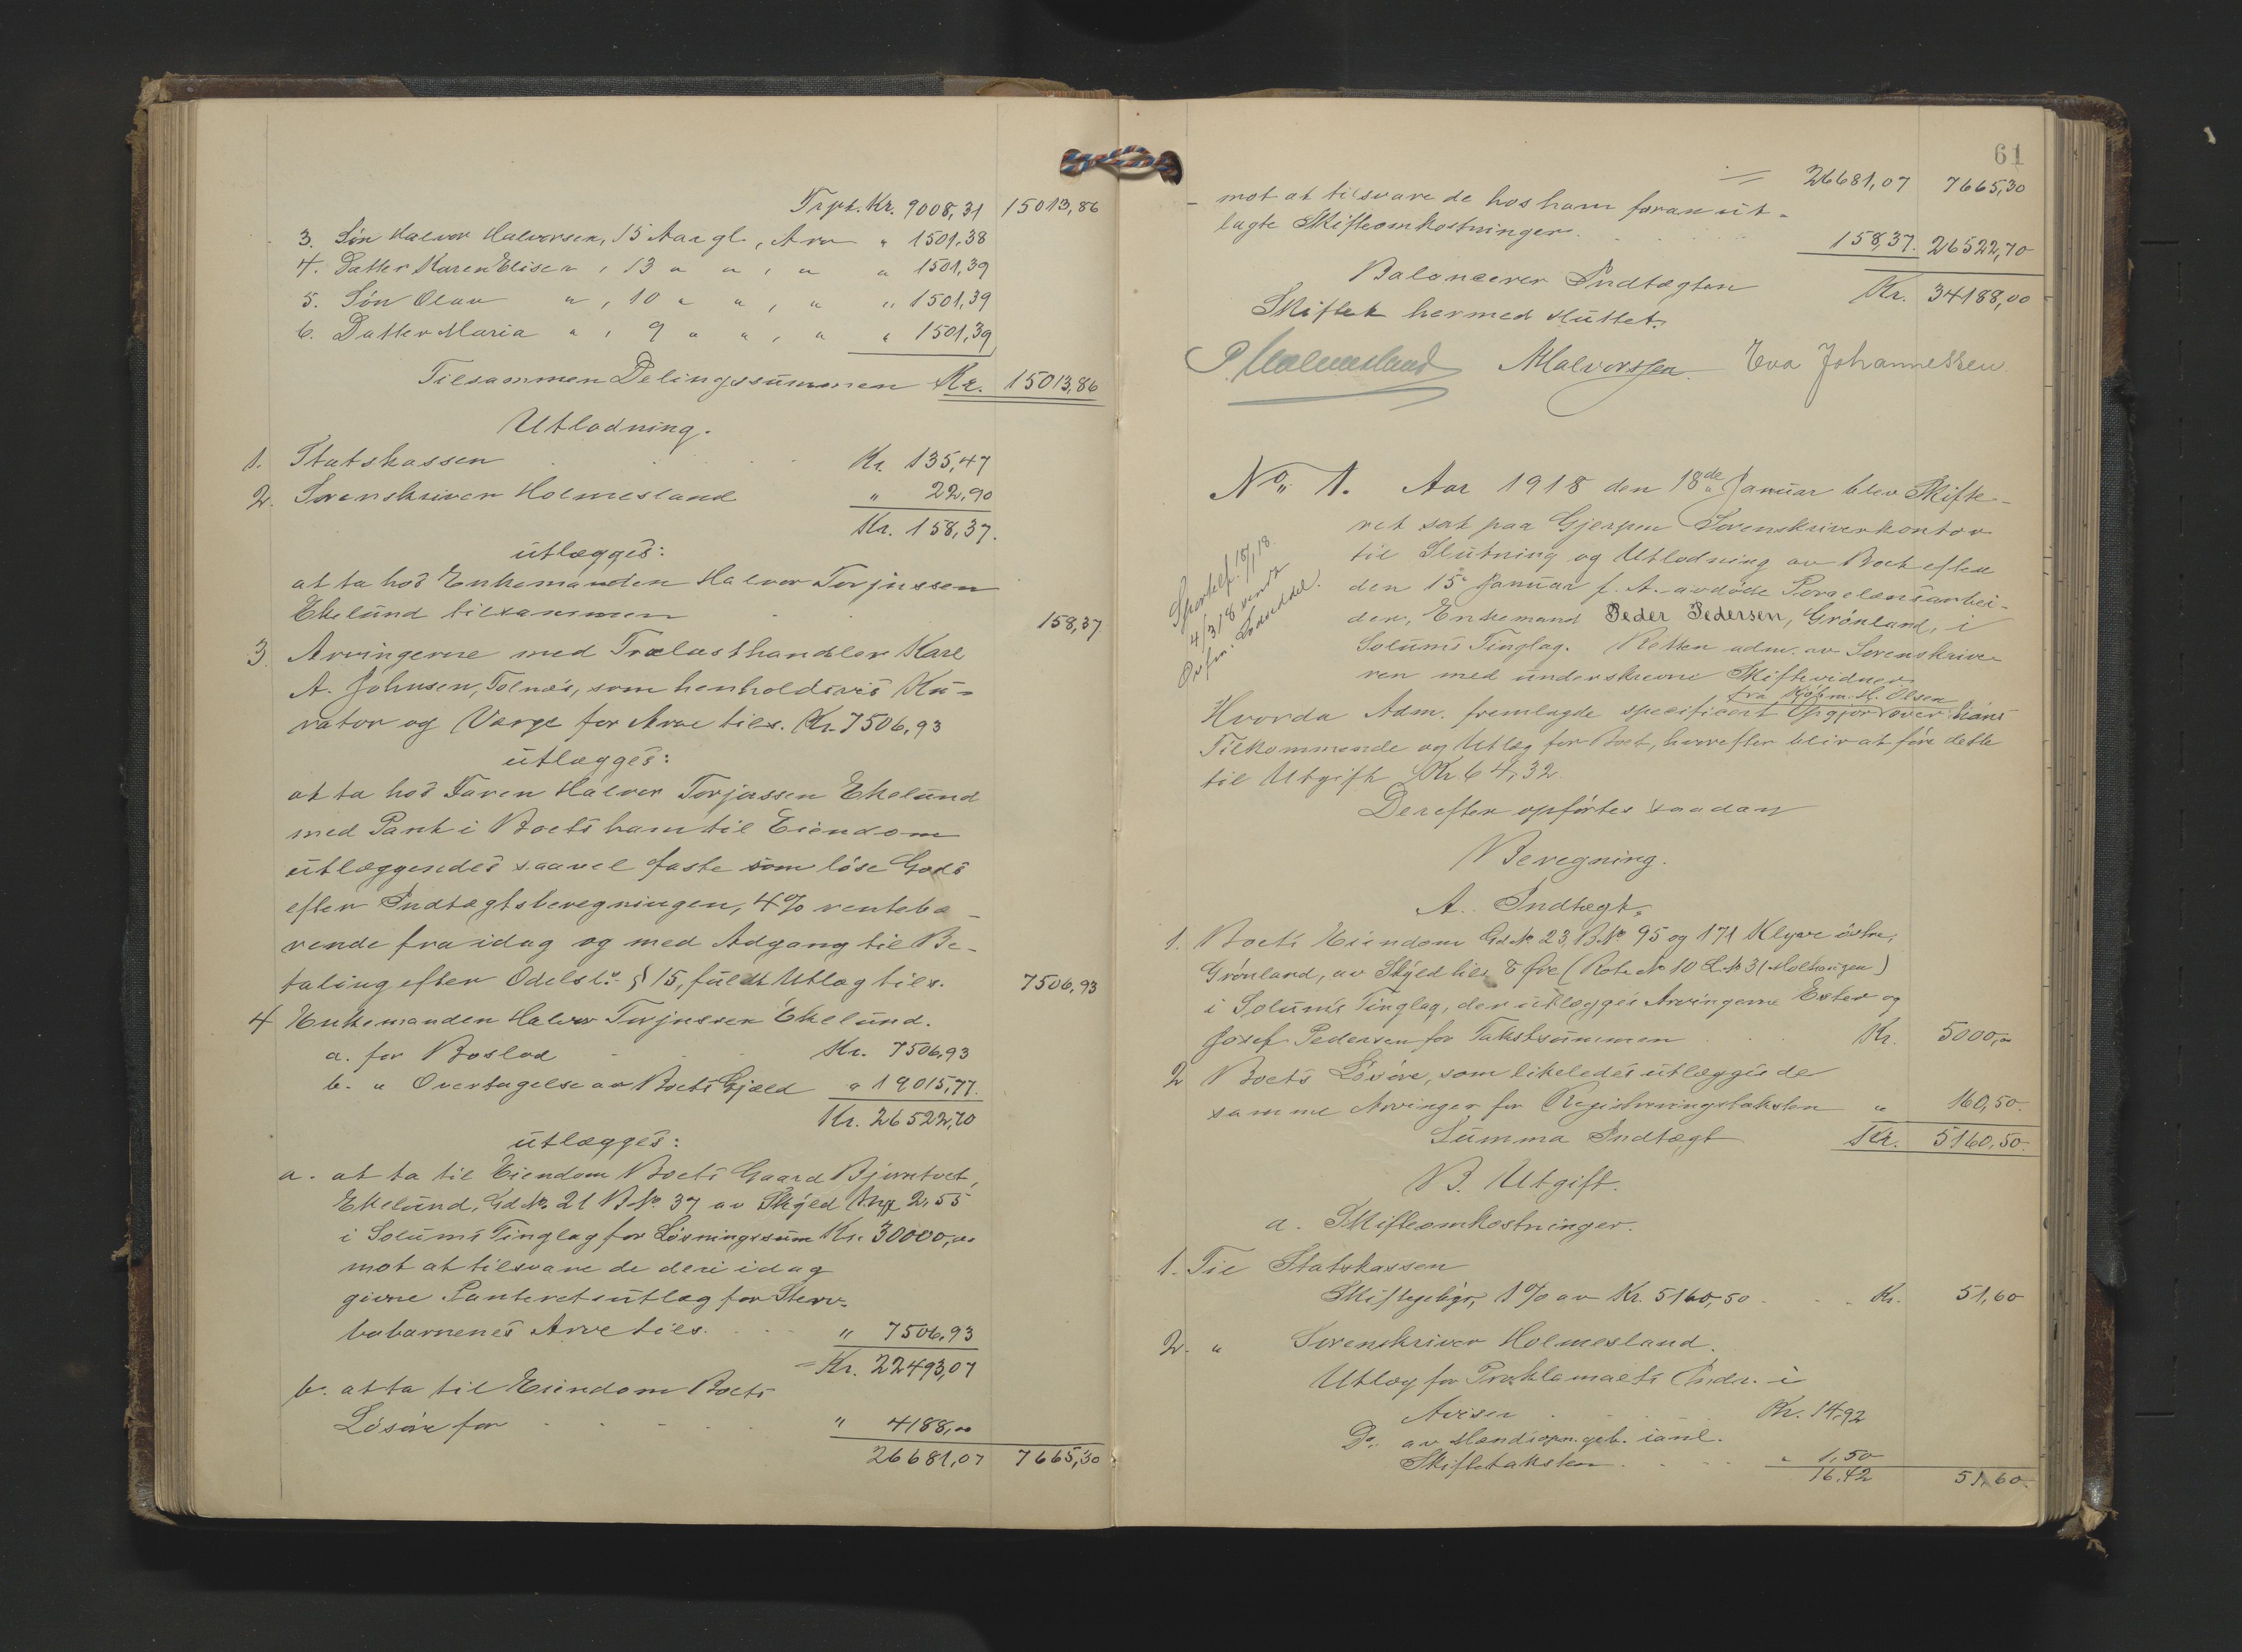 Trpt. Kr. 9008,31 15013,86
3. Søn Halvor Halvorsen, 15 Aar gl., Arv " 1501,38
4. Datter Karen Elise " , 13 " " , " " 1501,39
5. Søn Olav " , 10 " " , " " 1501,39
6. Datter Maria " , 9 " " , " " 1501,39
Tilsammen Delingssummen Kr. 15013,86
Utlodning.
1. Statskassen Kr. 135,47
2. Sorenskriver Holmesland " 22,90
Kr. 158,37.
utlægges:
at ta hos Enkemanden Halvor Torjussen
Ekelund tilsammen 158,37
3. Arvingerne med Trælasthandler Karl
A. Johnsen, Tolnæs, som henholdsvis Ku-
rator og Verge for Arve tils. Kr. 7506,93
utlægges:
at ta hos Faren Halvor Torjussen Ekelund
med Pant i Boets ham til Eiendom
utlæggendes saavel faste som løse Gods
efter Indtægtsberegningen, 4% renteba-
rende fra idag og med Adgang til Be-
taling efter Odelsl. § 15, fuldt Utlæg tils. 7506,93
4 Enkemanden Halvor Torjussen Ekelund.
a. for Boslod Kr. 7506,93
b. " Overtagelse av Boets Gjæld " 19015,77.
Kr. 26522,70
utlægges:
a. at ta til Eiendom Boets Gaard Bjørntvet,
Ekelund, Gd. No. 21 B No. 37 av Skyld Mrk 2,55
i Solums Tinglag for Løsningssum Kr. 30000,00
mot at tilsvare de deri idag
givne Panteretsutlæg for Sterv-
bobarnenes Arv tils. " 7506,93
= Kr. 22493,07
b. at ta til Eiendom Boets
Løsøre for " 4188,00
26681,07 7665,30
61
26681,07 7665,30
- mot at tilsvare de hos ham foran ut-
lagte Skifteomkostninger 158,37. 26522,70
Balancerer Indtægten Kr. 34188,00
Skiftet hermed sluttet.
P. Holmesland AHalvorssen Eva Johannessen
No. 1. Aar 1918 den 18de Januar blev Skifte-
ret sat paa Gjerpen Sorenskriverkontor
til Slutning og Utlodning av Boet efter
den 15. Januar f. A. avdøde Porcelænsarbei-
der, Enkemand Peder Pedersen, Grønland, i
Solums Tinglag. Retten adm. av Sorenskrive-
ren med underskrevne Skiftevidner
18/1 18.
4/3 18
Hvorda Adm. fremlagde specificert Opgjør fra Kjøbm. H. Olsen over hans
Tilkommende og Utlæg for Boet, hvorefter blir at føre dette
til Utgift Kr. 64,32.
Derefter opførtes saadan
Beregning.
A. Indtægt.
1. Boets Eiendom Gd. No 23, B. No 95 og 171 Klyve østre,
Grønland, av Skyld tils. 8 Øre (Rote No 10 L. No 31 Molhaugen)
i Solums Tinglag, der utlægges Arvingerne Ester og
Josef Pedersen for Takstsummen Kr. 5000,00
2 Boets Løsøre, som likeledes utlægges de
samme Arvinger for Registreringstaksten " 160,50.
Summa Indtægt Kr. 5160,50.
B. Utgift.
a. Skifteomkostninger.
1. Til Statskassen
Skiftegebyr, 1% av Kr. 5160,50 Kr. 51,60
2. " Sorenskriver Holmesland.
Utlæg for Proklamaets Indr. i
Aviser Kr. 14,92
Do. av Mændsopn. geb. ianl.
Skiftetaksten " 1,50
16,42 51,60.